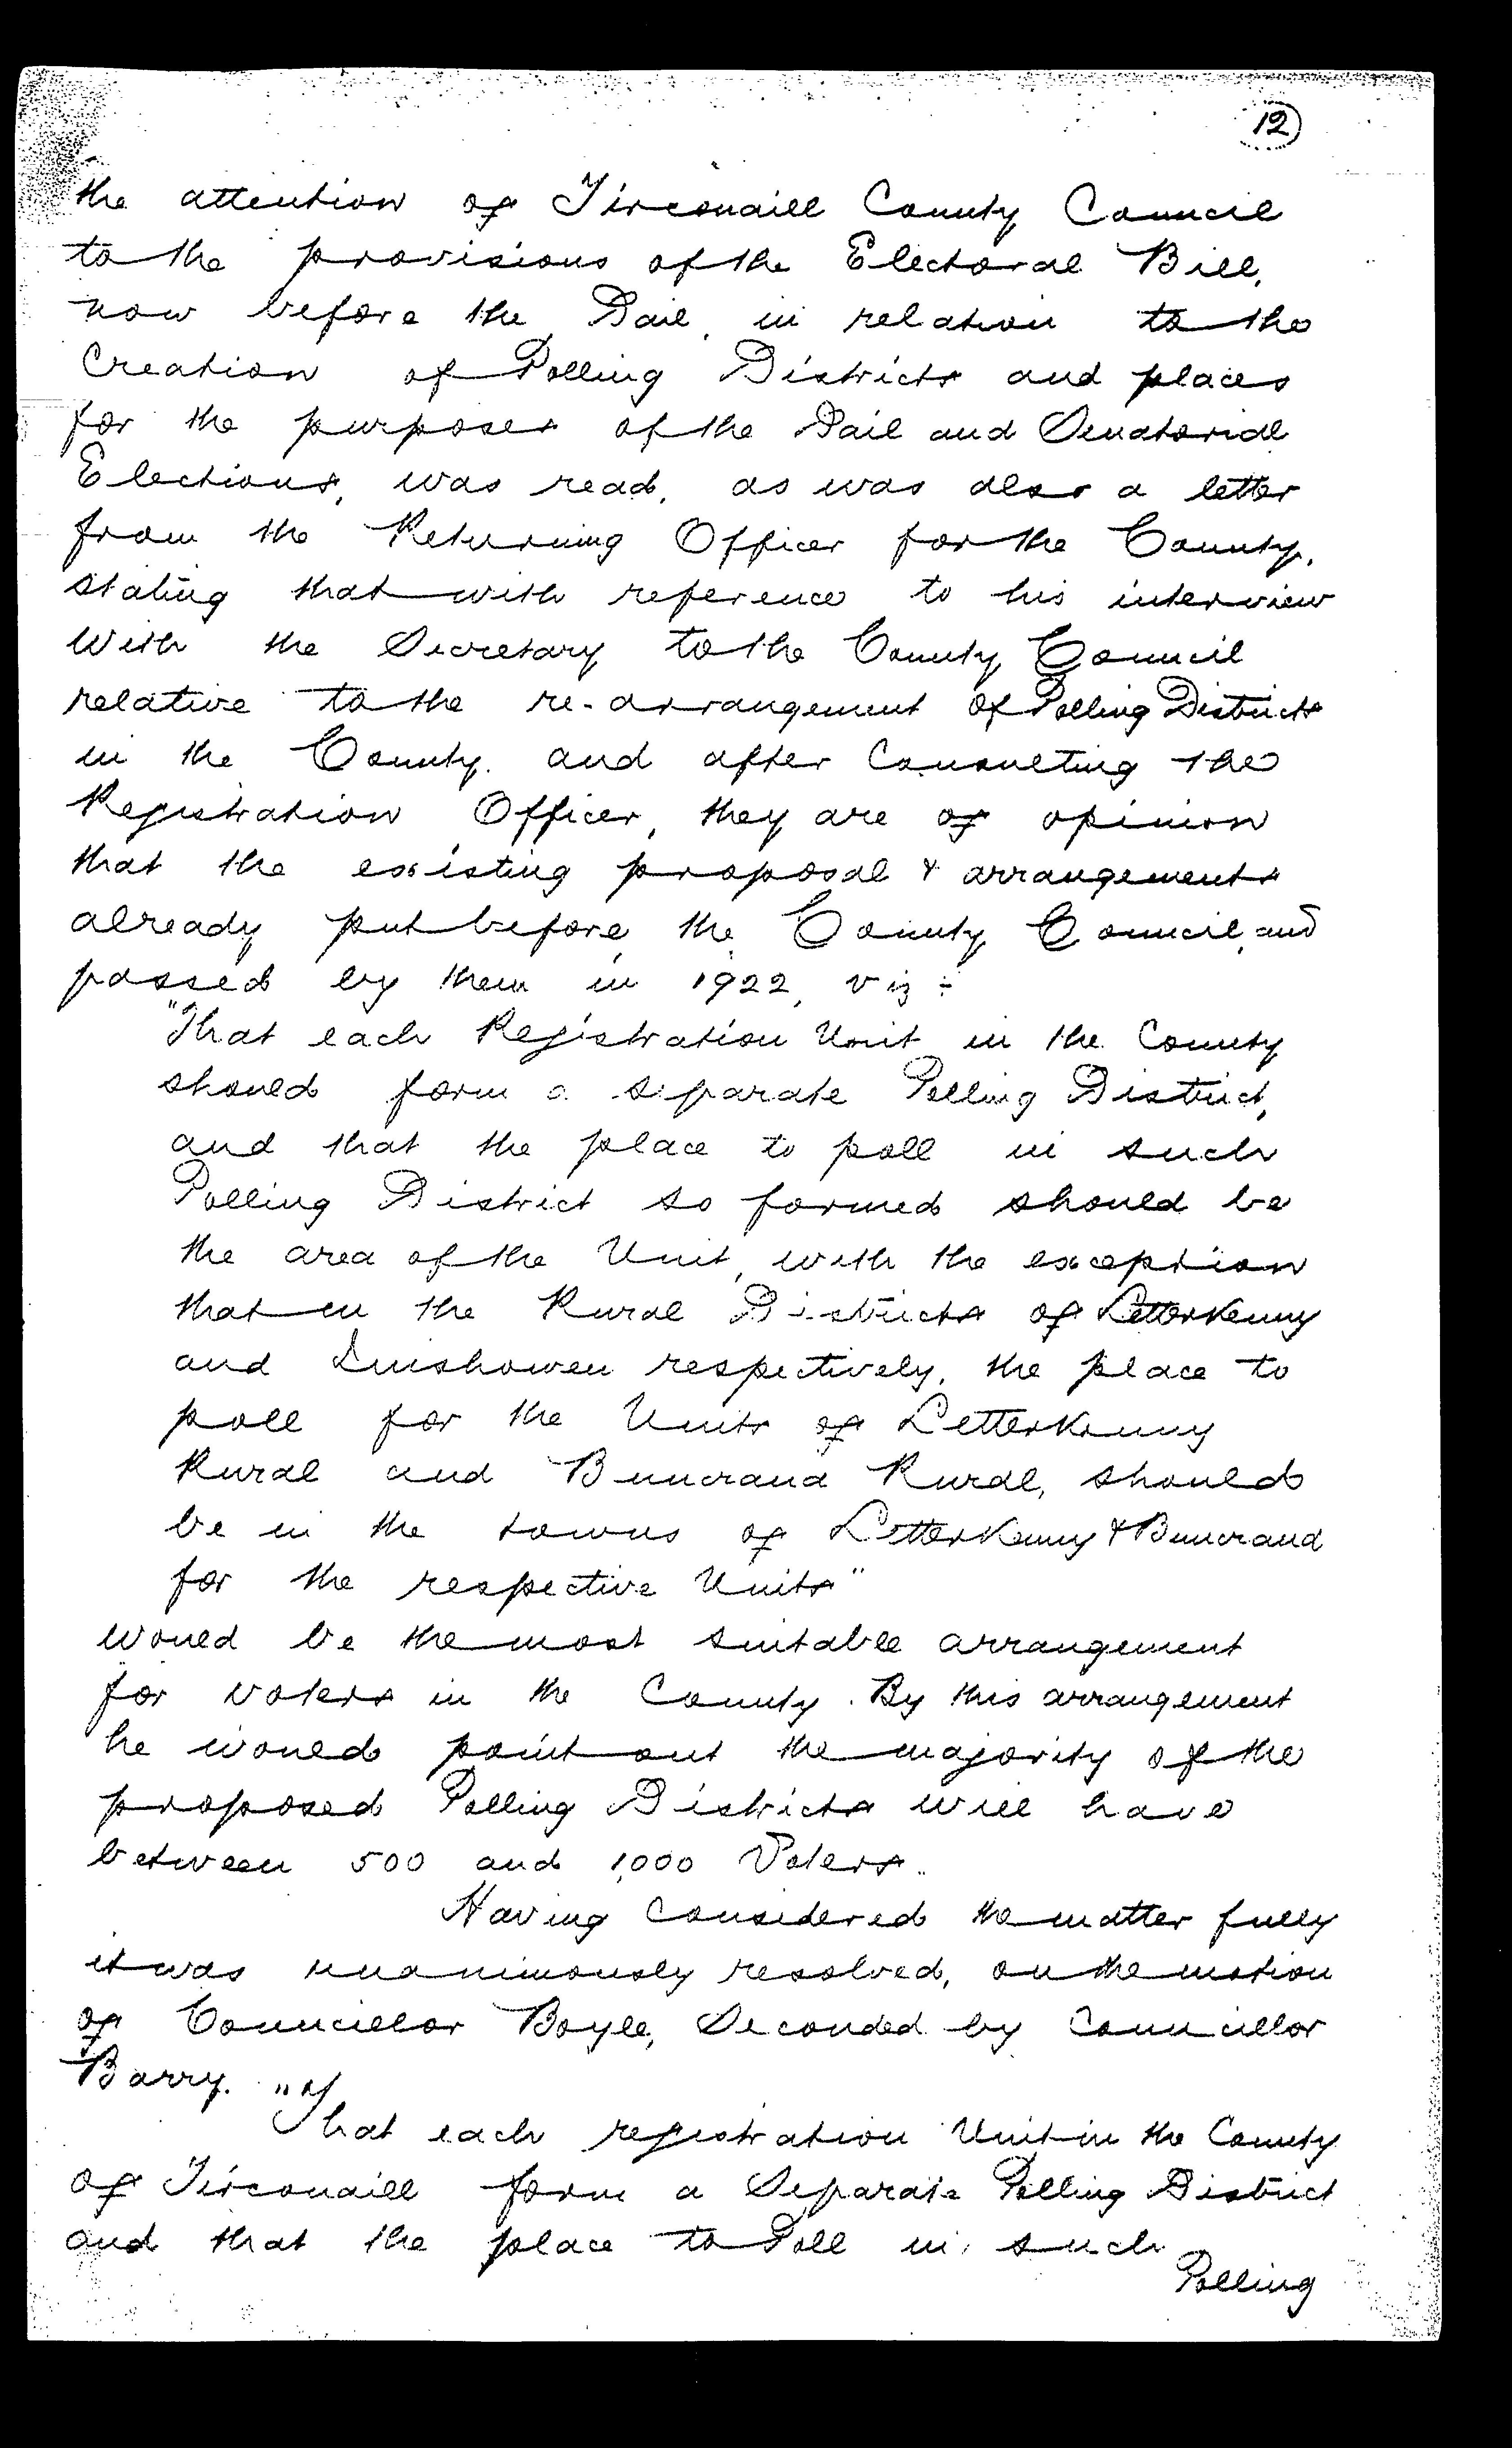 12
the attention of Tirconaill County Council
to the provisions of the Electoral Bill,
now before the Dail, in relation to the
Creation of Polling Districts and places
for the purposes of the Dail and Senatorial
Elections, was read, as was also a letter
from the Returning Officer for the County,
stating that with reference to his interview
with the Secretary to the County Council
relative to the re-arrangement of Polling Districts
in the County, and after Consulting the
Registration Officer, they are of opinion
that the existing proposal & arrangements
already put before the County Council, and
passed by them in 1922, viz :-
"That each Registration Unit in the County
should form a separate Polling District,
and that the place to poll in such
Polling District so formed should be
the area of the Unit, with the exception
that in the Rural Districts of Letterkenny
and Inishowen respectively, the place to
poll for the Units of Letterkenny
Rural and Buncrana Rural, should
be in the towns of Letterkenny & Buncrana
for the respective Units"
would be the most suitable arrangement
for voters in the County. By this arrangement
he would point out the majority of the
proposed Polling Districts will have
between 500 and 1,000 Voters.
Having Considered the matter fully
it was unanimously resolved, on the motion
of Councillor Boyle, Seconded by Councillor
Barry. "That each registration Unit in the County
of Tirconaill form a Separate Polling District
and that the place to Poll in such
Polling